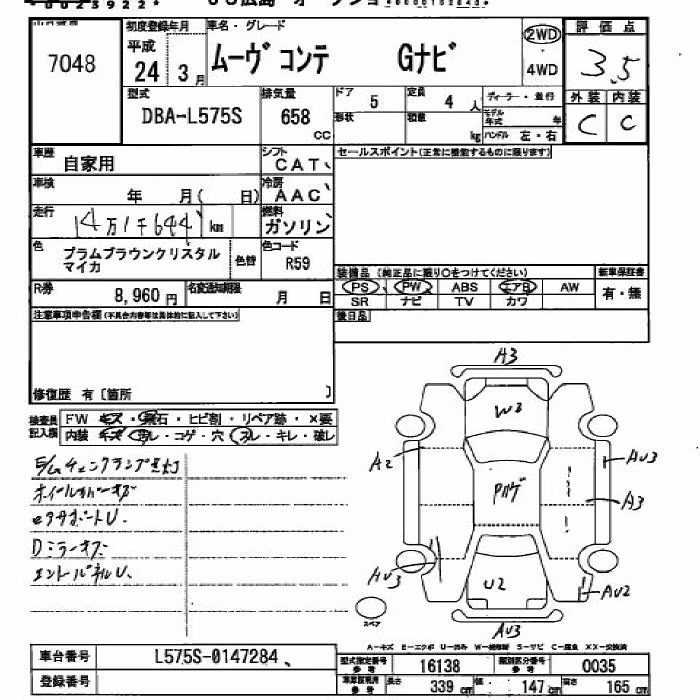 7048
初度登録年月
平成
24年 3月
車名・グレード
ムーヴ コンテ Gナビ
2WD
4WD
評価点
3.5
外装 内装
C C
型式
DBA-L575S
排気量
658 CC
ドア 5
定員 4人
ディーラー・並行
形状
積載 kg
モデル年式 年
ハンドル 左・右
車歴 自家用
シフト CAT
セールスポイント(正常に機能するものに限ります)
車検 年 月( 日)
冷房 AAC
走行 14万1千644 km
燃料 ガソリン
色 プラムブラウンクリスタル
マイカ
色替
色コード R59
装備品 (純正品に限り○をつけてください)
新車保証書
PS PW ABS エアB AW
有・無
SR ナビ TV カワ
R券 8,960円
名変通知期限 月 日
後日品
注意事項申告欄(不具合内容等は具体的に記入して下さい)
修復歴 有〔箇所 〕
検査員記入欄
FW キズ・飛石・ヒビ割・リペア跡・×要
内装 キズ・ヨゴレ・コゲ・穴・スレ・キレ・破レ
ホイールカバーキズ
Dミラーキズ
A3
W3
A2
AU3
A3
AU3
U2
AU2
AU3
スペア
A−キズ E−エクボ U−凹み W−補修跡 S−サビ C−腐食 XX−交換済
車台番号 L575S-0147284
登録番号
型式指定番号 参考 16138
類別区分番号 参考 0035
参考 長さ 339 cm 幅 147 cm 高さ 165 cm